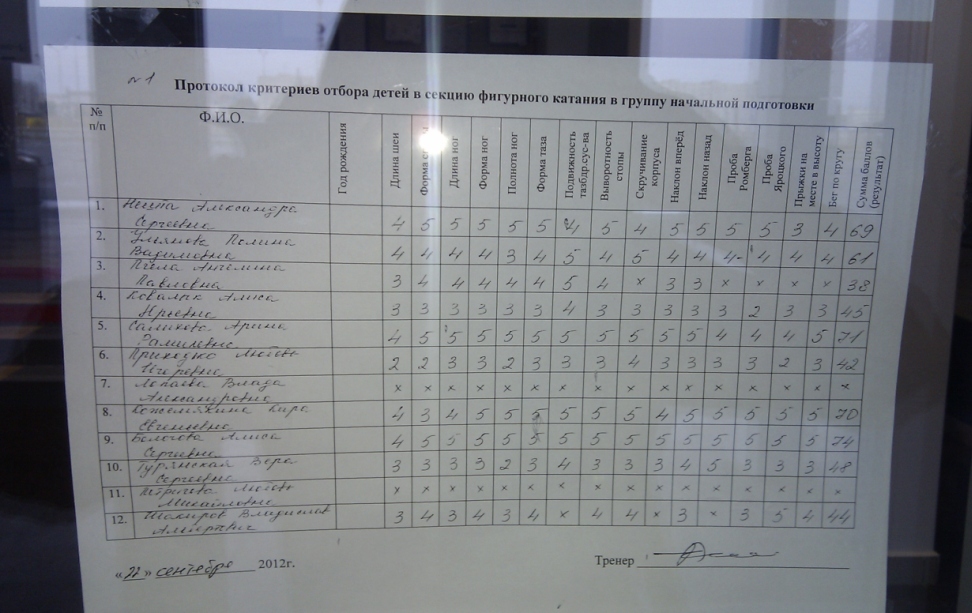 №1
Протокол критериев отбора детей в секцию фигурного катания в группу начальной подготовки
№ п/п Ф.И.О. Год рождения Длина шеи Форма Длина ног Форма ног Полнота ног Форма таза Подвижность тазбдр.сус-ва Выворотность стопы Скручивание корпуса Наклон вперёд Наклон назад Проба Ромберга Проба Яроцкого Прыжки на месте в высоту Бег по кругу Сумма баллов (результат)
1. Александра
Сергеевна 4 5 5 5 5 5 4 5 4 5 5 5 5 3 4 69
2. Ульянова Полина
Вадимовна 4 4 4 4 3 4 5 4 5 4 4 4 4 4 4 61
3. Пчела Ангелина
Павловна 3 4 4 4 4 4 5 4 x 3 3 x x x x 38
4. Ковалык Алиса
Юрьевна 3 3 3 3 3 3 4 3 3 3 3 3 2 3 3 45
5. Салихова Арина
Рамилевна 4 5 5 5 5 5 5 5 5 5 5 4 4 4 5 71
6. Приходько Любовь
Игоревна 2 2 3 3 2 3 3 3 4 3 3 3 3 2 3 42
7. Лопаева Влада
Александровна x x x x x x x x x x x x x x x x
8. Кожемякина Кира
Евгеньевна 4 3 4 5 5 5 5 5 5 4 5 5 5 5 5 70
9. Бологова Алиса
Сергеевна 4 5 5 5 5 5 5 5 5 5 5 5 5 5 5 74
10. Вера
Сергеевна 3 3 3 3 2 3 4 3 3 3 4 5 3 3 3 48
11. Любовь
Михайловна x x x x x x x x x x x x x x x x
12. Шакиров Владислав
3 4 3 4 3 4 x 4 4 x 3 x 3 5 4 44
«22» сентября 2012г. Тренер